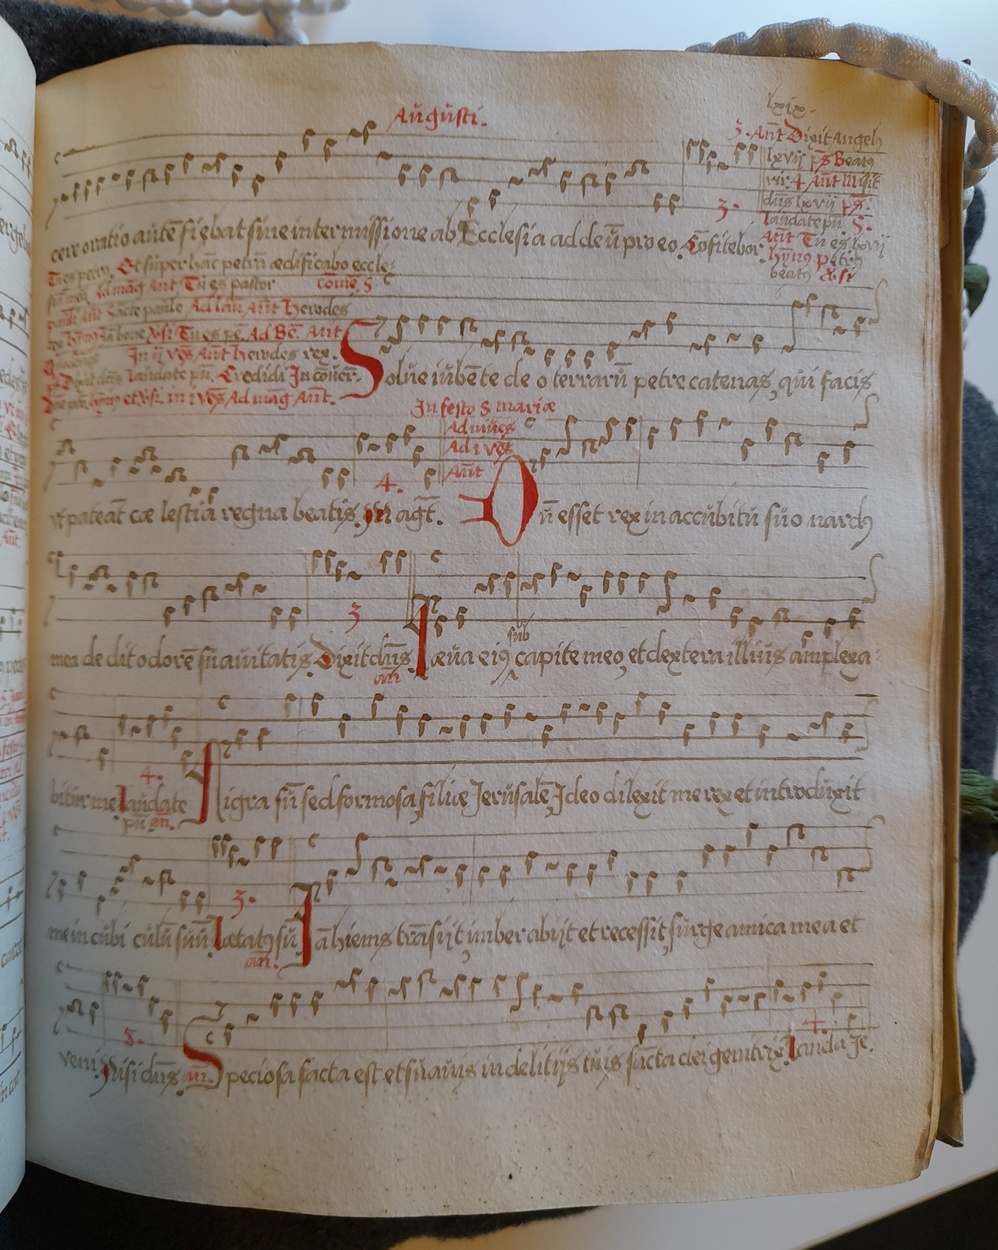 Augusti.
lxix.
3. Ant Dixit angelꝰ
lxvij ps Beatꝰ
vir 4 Ant Misit
dn̄s lxvij ps.
3. laudate pu. 5.
Ant Tu es lxvij
hymꝰ petrꝰ
beatꝰ
cere oratio autē fiebat sine intermissione ab Ecclesia ad deū pro eo. Cōfitebor
Tu es petrꝰ. Et super hāc petrā ædificabo eccle
Ad mag Ant Tu es pastor com̄e S
pauli Ant Sācte paule Ad lau Ant Herodes
Tu es pe. Ad Be. Ant
In ij ves Ant herodes rex.
laudate pu. Credidi In cōuer.
In i ves Ad mag Ant.
Solue iubēte deo terrarū petre catenas, qui facis
In festo S mariæ
Ad niues
Ad i ves
Ant
vt pateāt cælestia regna beatis. 4. Magt̄. Dū esset rex in accubitu suo nardꝰ
mea dedit odorē suauitatis. 3 Dixit dn̄s. an̄ Læua eiꝰ sub capite meo, et dextera illius āmplexa
bitur me 4. laudate pu an. Nigra sū sed formosa filiæ Jerusalē Ideo dilexit me rex et introduxit
me in cubiculū suū 3. Lætatꝰ sū an. Iā hiems trāsijt imber abijt et recessit, surge amica mea et
veni. 5. Nisi dn̄s an. Speciosa facta est et suauis in delitijs tuis sācta dei genitrix 4. lauda Je.